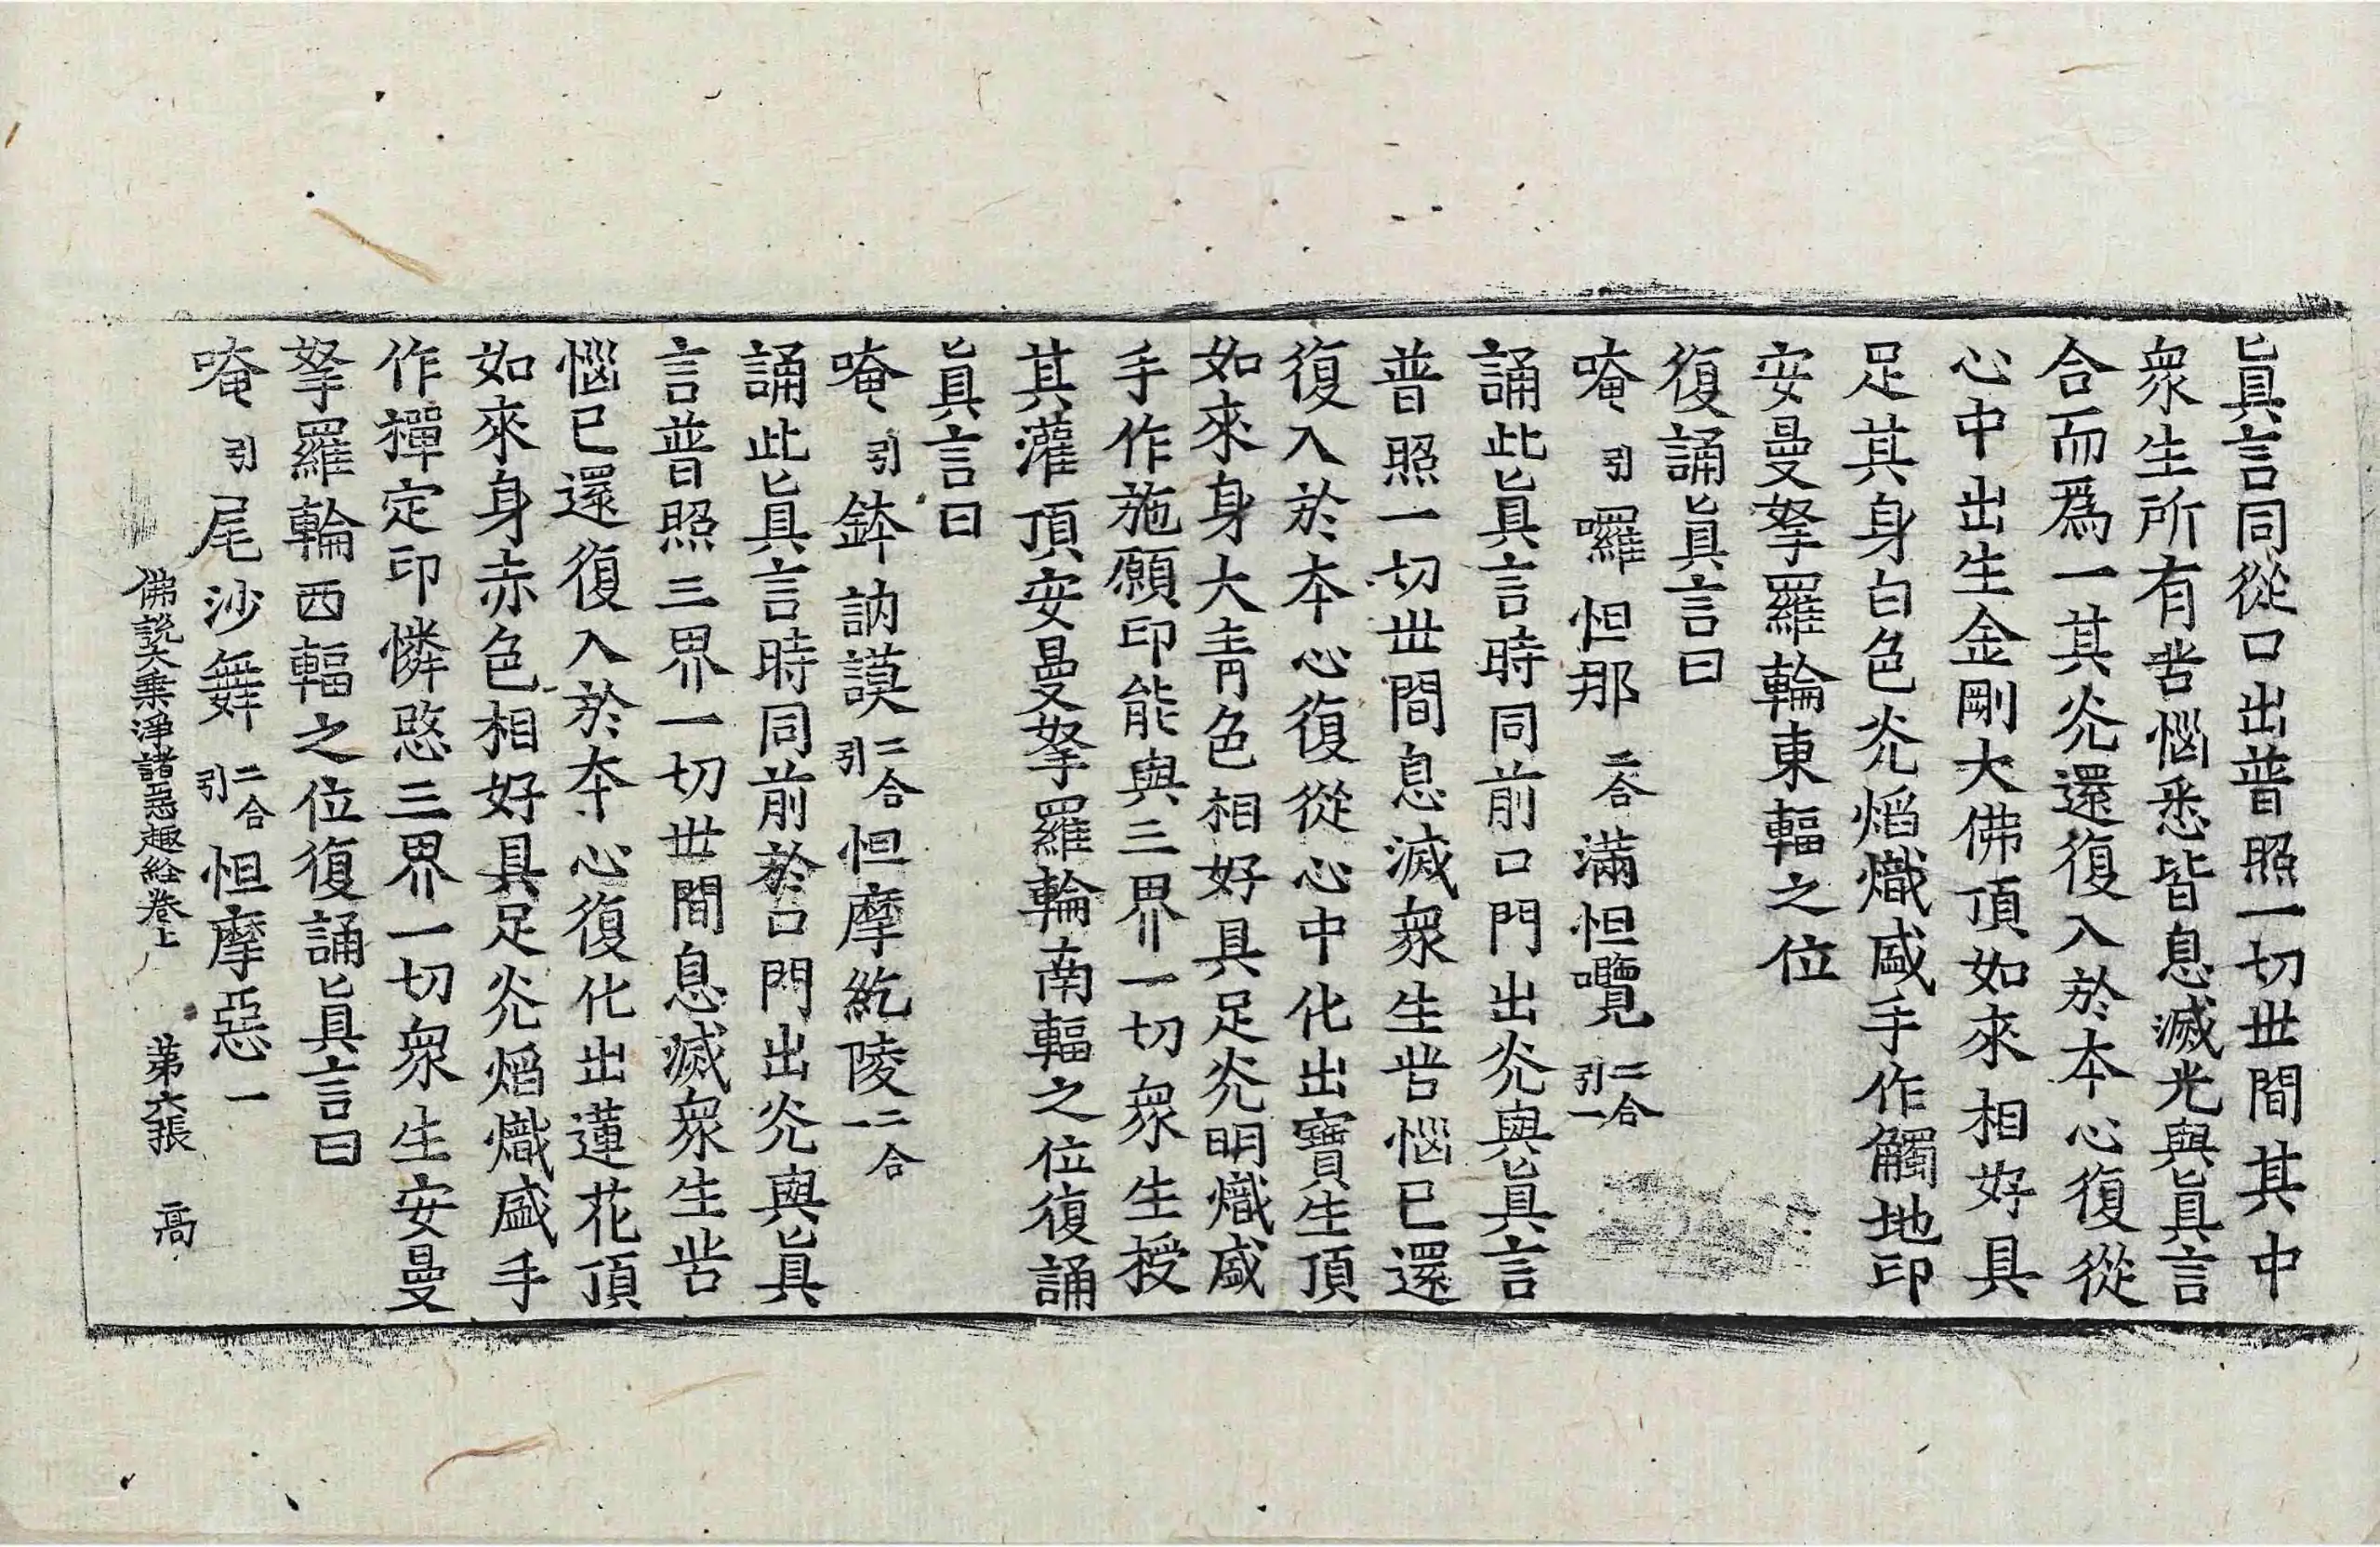 眞言同從口出普照一切世間其中
衆生所有苦惱悉皆息滅光與眞言
合而爲一其光還復入於本心復從
心中出生金剛大佛頂如來相好具
足其身白色光焰熾盛手作觸地印
安曼拏羅輪東輻之位
復誦眞言曰
唵引囉怛那二合滿怛囕二合引一
誦此眞言時同前口門出光與眞言
普照一切世間息滅衆生苦惱已還
復入於本心復從心中化出寶生頂
如來身大青色相好具足光明熾盛
手作施願印能與三界一切衆生授
其灌頂安曼拏羅輪南輻之位復誦
眞言曰
唵引鉢訥謨二合引怛摩紇陵二合一
誦此眞言時同前於口門出光與眞
言普照三界一切世間息滅衆生苦
惱已還復入於本心復化出蓮花頂
如來身赤色相好具足光焰熾盛手
作禪定印憐愍三界一切衆生安曼
拏羅輪西輻之位復誦眞言曰
唵引尾沙舞二合引怛摩惡一
佛說大乘淨諸惡趣經卷上 第六張 高